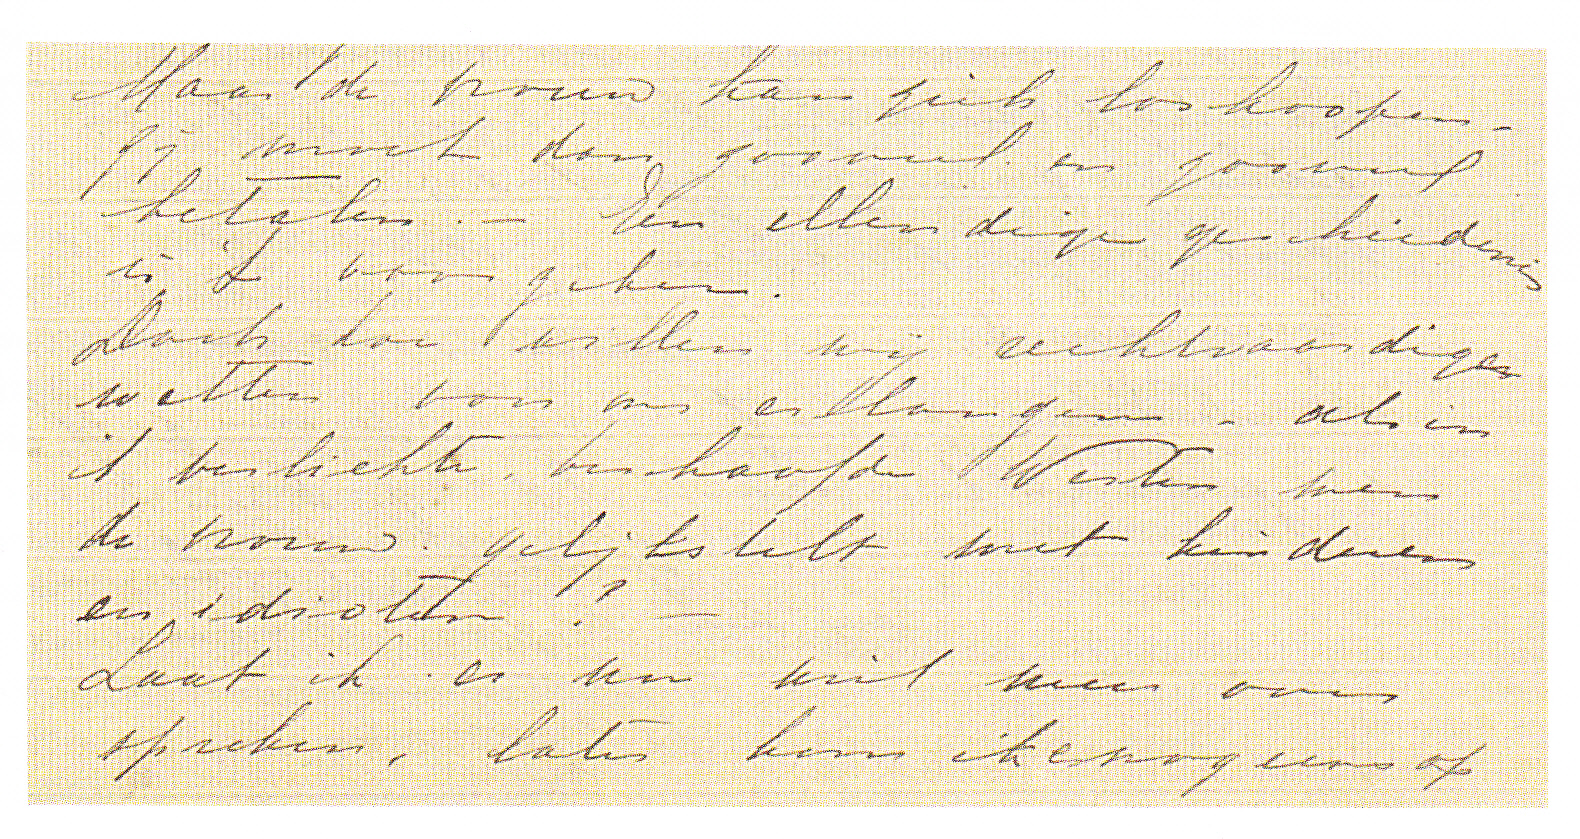 Maar de vrouw kan zich loskoopen -
zij moet dan zooveel en zooveel
betalen. — Een ellendige geschiedenis
is 't voor geken.
Doch hoe willen wij rechtvaardiger
wetten voor ons erlangen - als in
't verlichte, beschaafde Westen men
de vrouw gelijkstelt met kinderen
en idioten? —
Laat ik er nu niet meer over
spreken, later kom ik er nog eens op